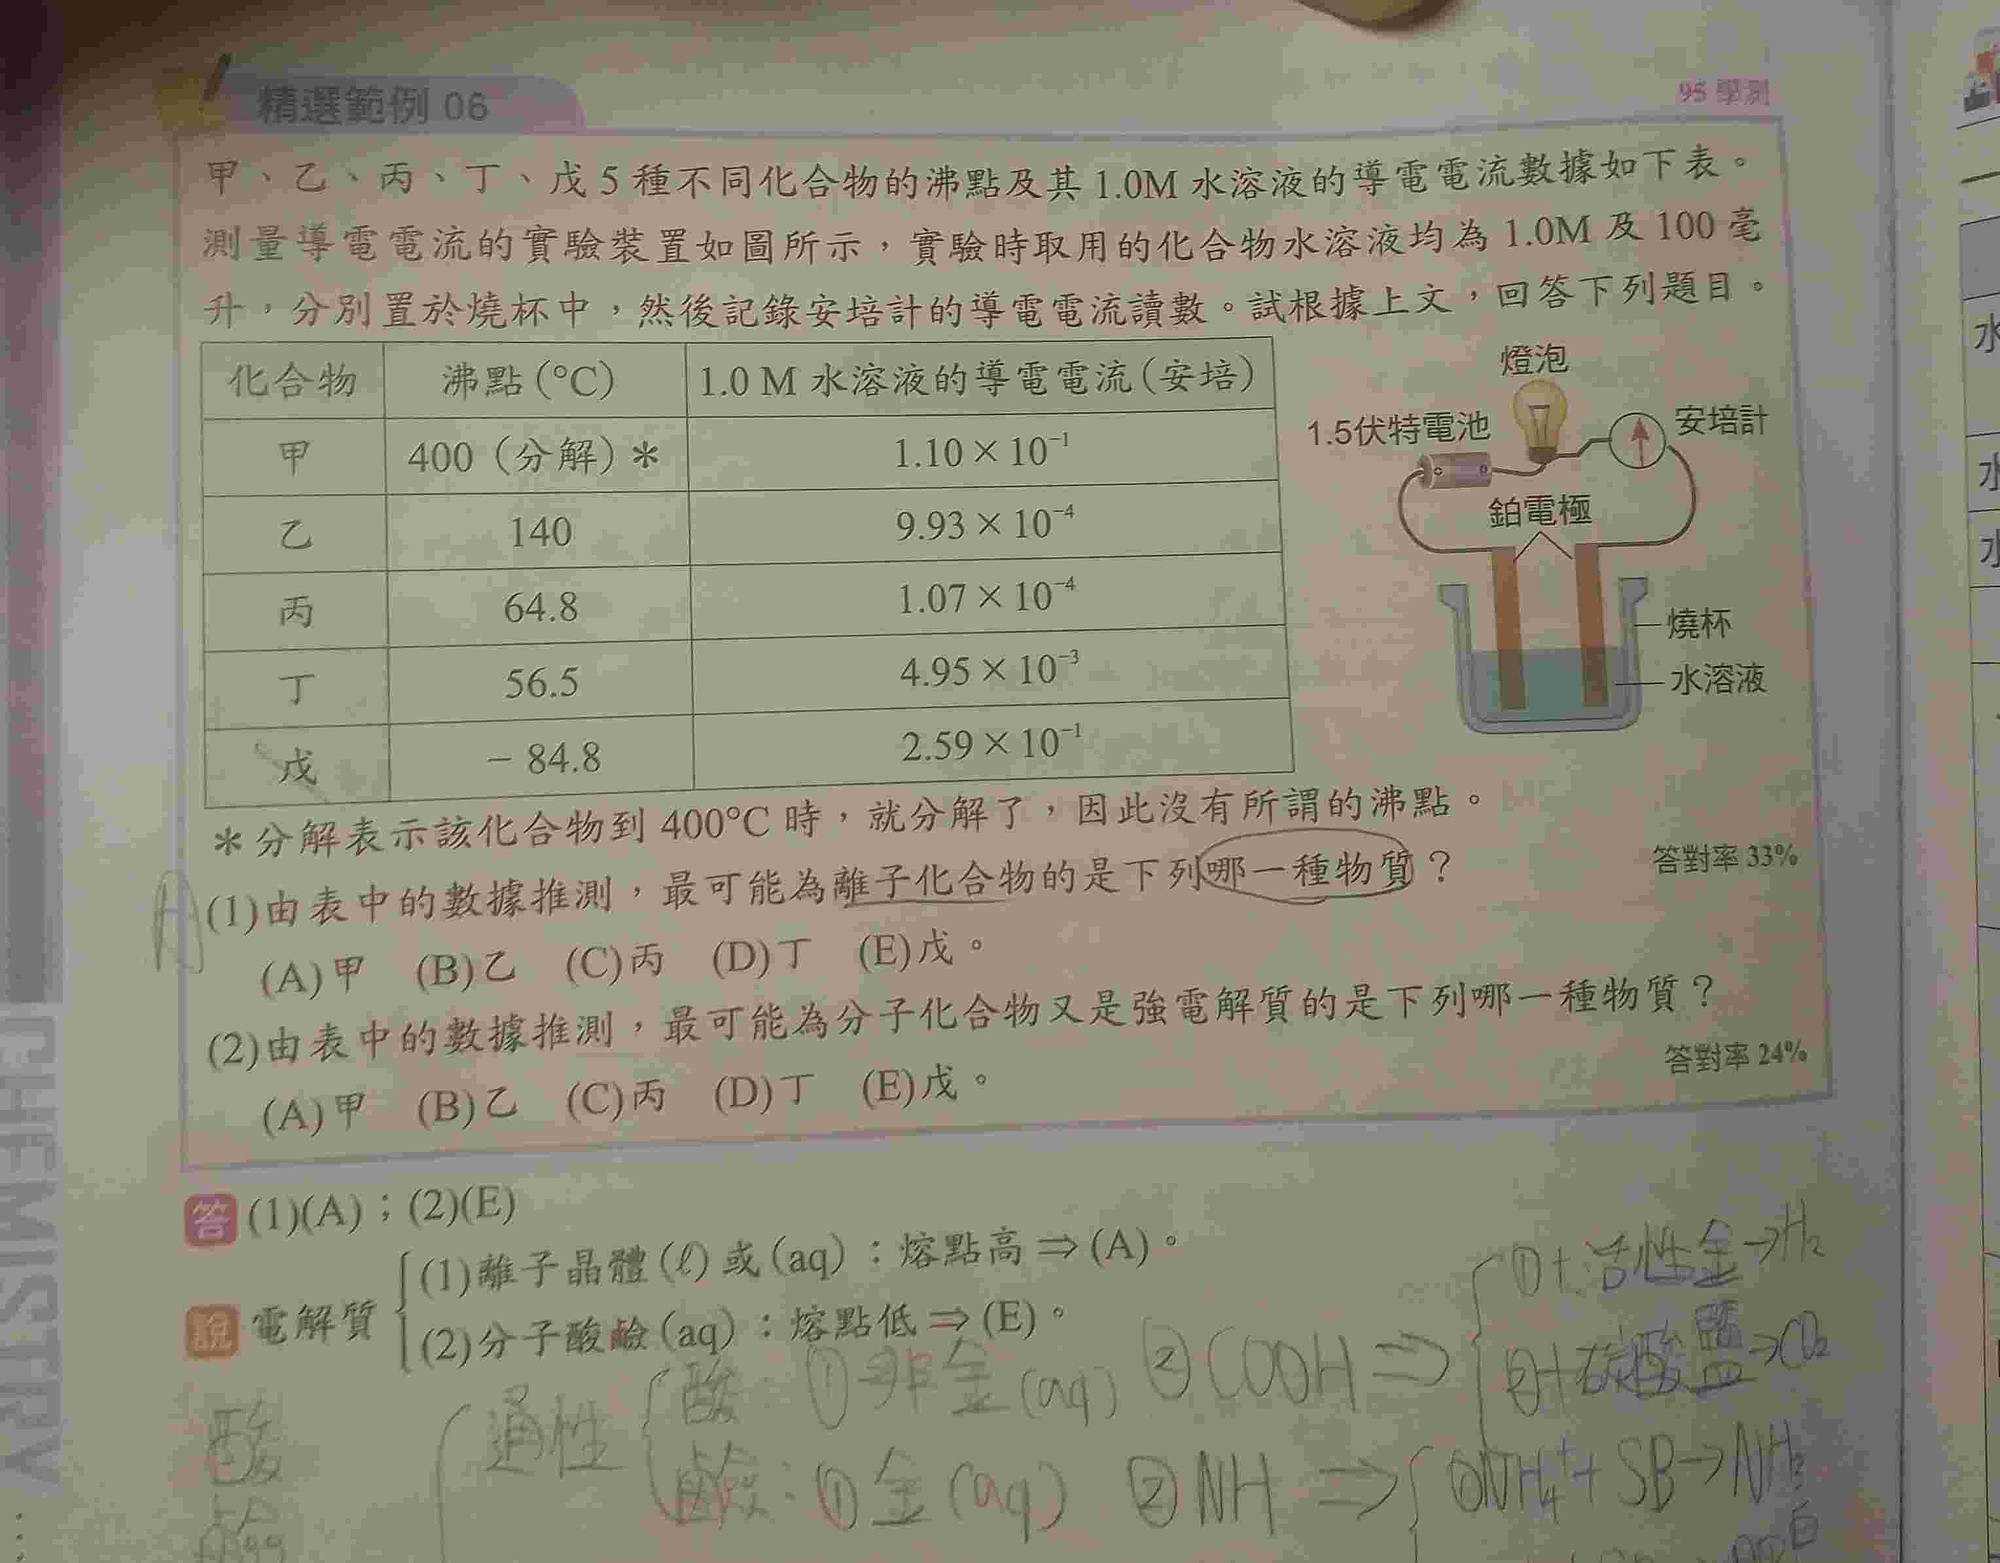 精選範例 06
95 學測
甲、乙、丙、丁、戊 5 種不同化合物的沸點及其 1.0M 水溶液的導電電流數據如下表。
測量導電電流的實驗裝置如圖所示，實驗時取用的化合物水溶液均為 1.0M 及 100 毫
升，分別置於燒杯中，然後記錄安培計的導電電流讀數。試根據上文，回答下列題目。
化合物 沸點(°C) 1.0 M 水溶液的導電電流(安培)
甲 400（分解）＊ 1.10 × 10⁻¹
乙 140 9.93 × 10⁻⁴
丙 64.8 1.07 × 10⁻⁴
丁 56.5 4.95 × 10⁻³
戊 − 84.8 2.59 × 10⁻¹
燈泡
1.5伏特電池
安培計
鉑電極
燒杯
水溶液
＊分解表示該化合物到 400°C 時，就分解了，因此沒有所謂的沸點。
(1)由表中的數據推測，最可能為離子化合物的是下列哪一種物質？
答對率 33%
(A)甲 (B)乙 (C)丙 (D)丁 (E)戊。
(2)由表中的數據推測，最可能為分子化合物又是強電解質的是下列哪一種物質？
答對率 24%
(A)甲 (B)乙 (C)丙 (D)丁 (E)戊。
答 (1)(A)；(2)(E)
說 電解質
(1)離子晶體(ℓ)或(aq)：熔點高⇒(A)。
(2)分子酸鹼(aq)：熔點低⇒(E)。
①+活性金→H₂
②+碳酸鹽→CO₂
通性
酸 ①非金(aq) ②COOH ⇒
鹼：①金(aq) ②NH ⇒
①NH₄⁺+SB→NH₃
酸
CHEMISTRY
水
水
水